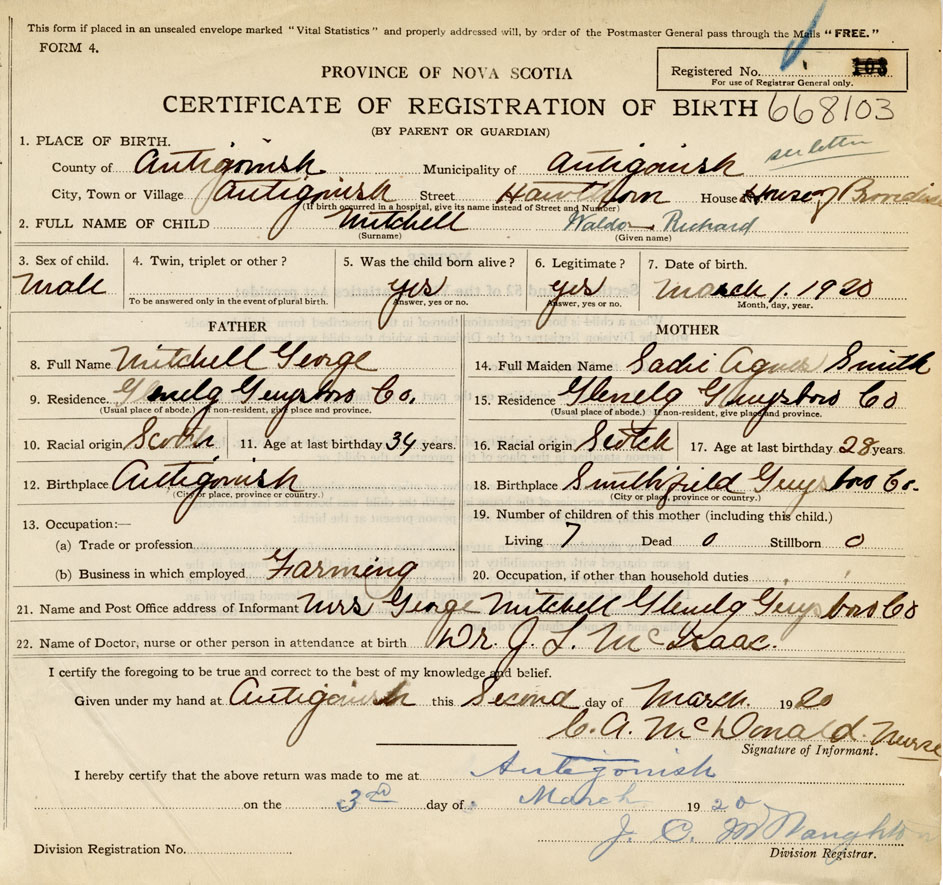 This form if placed in an unsealed envelope marked "Vital Statistics" and properly addressed will, by order of the Postmaster General pass through the Mails "FREE."
FORM 4.
Registered No. 103
For use of Registrar General only.
PROVINCE OF NOVA SCOTIA
CERTIFICATE OF REGISTRATION OF BIRTH 668103
(BY PARENT OR GUARDIAN)
see letter
1. PLACE OF BIRTH.
County of Antigonish Municipality of Antigonish
City, Town or Village Antigonish Street Hawthorn House No. House of
(If birth occurred in a hospital, give its name instead of Street and Number)
2. FULL NAME OF CHILD Mitchell Waldon Richard
(Surname) (Given name)
3. Sex of child. 4. Twin, triplet or other? 5. Was the child born alive? 6. Legitimate? 7. Date of birth.
Male yes yes March 1. 1920
To be answered only in the event of plural birth. Answer, yes or no. Answer, yes or no. Month, day, year.
FATHER
8. Full Name Mitchell George
9. Residence Glenelg Guysboro Co.
(Usual place of abode.) If non-resident, give place and province.
10. Racial origin Scotch 11. Age at last birthday 34 years.
12. Birthplace Antigonish
(City or place, province or country.)
13. Occupation:—
(a) Trade or profession
(b) Business in which employed Farming
MOTHER
14. Full Maiden Name Sadie Agnes Smith
15. Residence Glenelg Guysboro Co
(Usual place of abode.) If non-resident, give place and province.
16. Racial origin Scotch 17. Age at last birthday 28 years.
18. Birthplace Smithfield Guysboro Co.
(City or place, province or country.)
19. Number of children of this mother (including this child.)
Living 7 Dead 0 Stillborn 0
20. Occupation, if other than household duties
21. Name and Post Office address of Informant Mrs George Mitchell Glenelg Guysboro Co
22. Name of Doctor, nurse or other person in attendance at birth Dr. J. L. McIsaac.
I certify the foregoing to be true and correct to the best of my knowledge and belief.
Given under my hand at Antigonish this Second day of March. 1920
C. A. McDonald. Nurse
Signature of Informant.
I hereby certify that the above return was made to me at Antigonish
on the 3rd day of March 1920
J. C. McNaughton
Division Registration No.
Division Registrar.